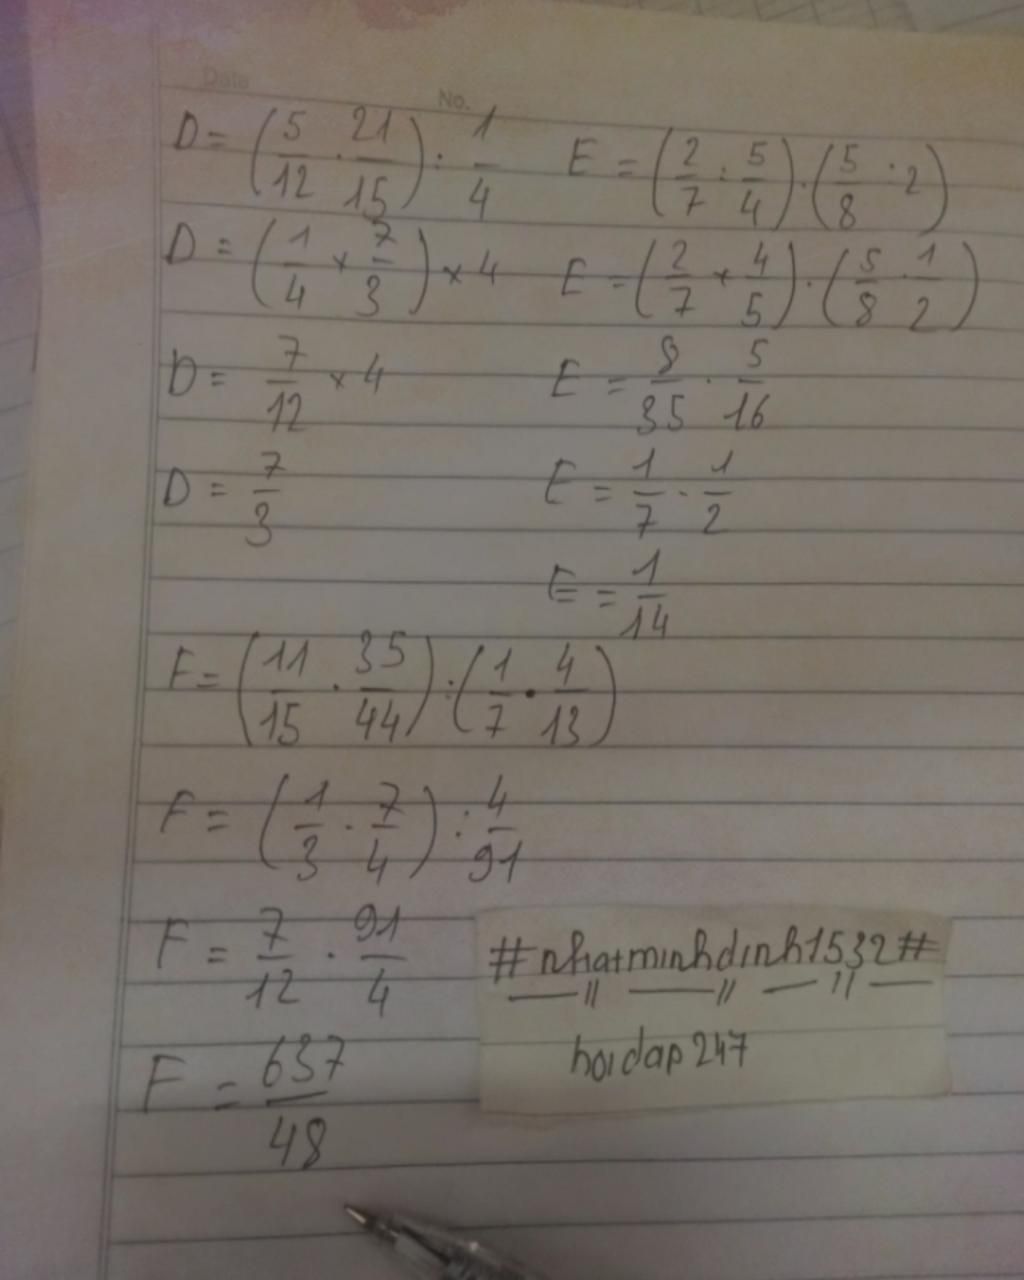 Date No.
D = (5/12 . 21/15) : 1/4
D = (1/4 × 7/3) × 4
D = 7/12 × 4
D = 7/3
E = (2/7 : 5/4) . (5/8 : 2)
E = (2/7 × 4/5) . (5/8 . 1/2)
E = 8/35 . 5/16
E = 1/7 . 1/2
E = 1/14
F = (11/15 . 35/44) : (1/7 . 4/13)
F = (1/3 . 7/4) : 4/91
F = 7/12 . 91/4
F = 637/48
#nhatminhdinh1532#
hoidap247